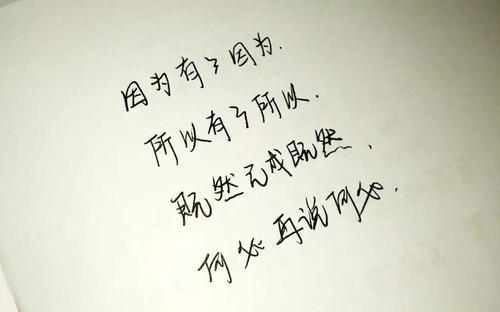 因为有了因为.
所以有了所以.
既然已成既然,
何必再说何必.